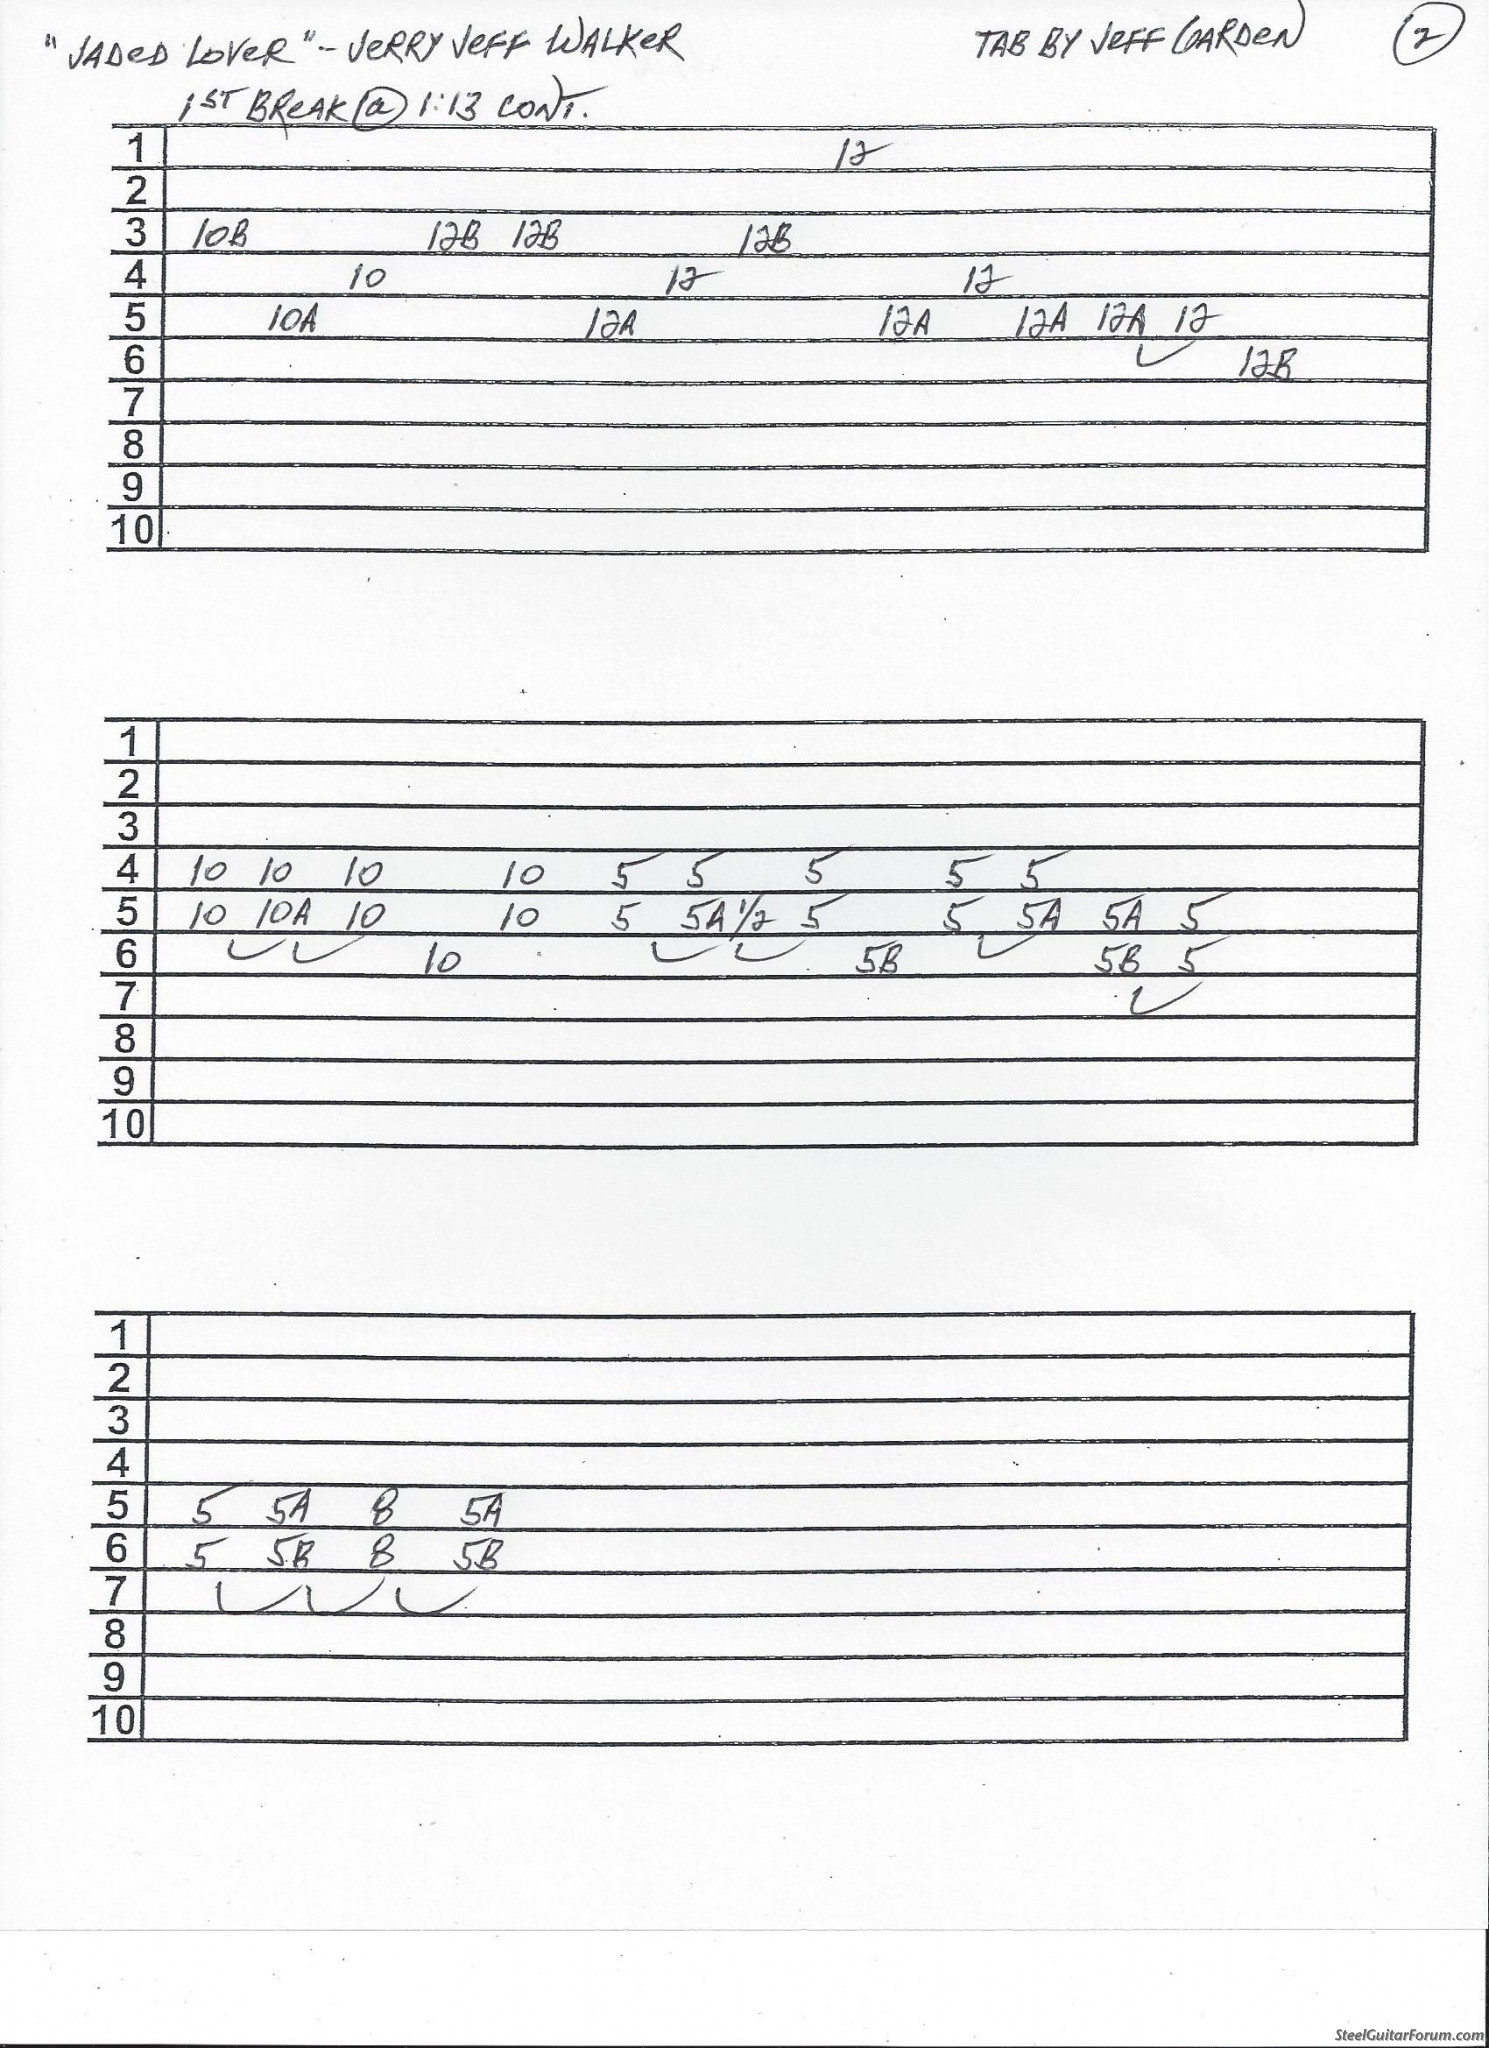 "JADED LOVER" - JERRY JEFF WALKER TAB BY JEFF GARDEN 2
1ST BREAK @ 1:13 CONT.
1 12
2
3 10B 12B 12B 12B
4 10 12 12
5 10A 12A 12A 12A 12A 12
6 12B
7
8
9
10
1
2
3
4 10 10 10 10 5 5 5 5 5
5 10 10A 10 10 5 5A 1/2 5 5 5A 5A 5
6 10 5B 5B 5
7
8
9
10
1
2
3
4
5 5 5A 8 5A
6 5 5B 8 5B
7
8
9
10
SteelGuitarForum.com